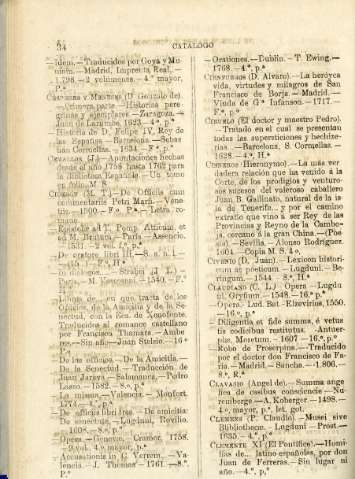 34
CATALOGO
—Idem.—Traducidos por Goya y Muniain.—Madrid, Imprenta Real,
1798.—2 volúmenes.—4.° mayor,
P.ª
(D. Gonzalo de)
—Primera parte.—Historias peregrinas y ejemplares.—Zaragoza.—
Juan de Larumbe, 1623.—4.° p.ª
Historia de D. Felipe IV, Rey de
las Españas.—Barcelona.—Sebastian Cormellas.—1634.—F.° p.ª
CEVALLOS (J.)—Apuntaciones hechas
desde el año 1758 hasta 1762 para
la Biblioteca Española.—Un tomo
en folio, M. S.
CICERON (M. T.)—De Officiis cum
commentariis Petri Marsi.—Venetiis.—1500.—F.°
—De oratore libri III.
—De dialogos.—Strabei (J. L.)
Paris.—M. Vascosani.—1540.—F.°
—Libros de... en que tracta de los
Oficios, de la Amicicia, de la Senectud, con la Eco. de Xenofonte.
Traducidos al romance castellano
por Francisco Thamara.—Amberes.—Sin año—Juan Stelsio.—16.°
—De los officios.—De la Amicitia.—
De la Senectud.—Traducción de
Juan Jarava.—Salamanca.—Pedro
Lasso.—1582.—8.°, p.ª
—La misma.—Valencia.—Monfort.
1774.—4.°, p.ª
—De officiis libri tres.—De amicitia.
De senectute.—Lugduni, Rovilio.
—Opera.—Geneve, Cramer, 1758.
9 vol. 4.° mayor, p.ª
—Accusationis in C. Verrem.—Valencia.—J. Thomas.—1761.—8.°.
P.ª
—Orationes.—Dublin.—T. Ewing.—
1768.—4.°, p.ª
CIENFUEGOS (D. Alvaro).—La heróyca
vida, virtudes y milagros de San
Francisco de Borja.—Madrid.—
Viuda de G.ª Infanson.—1717.—
F.°, p.ª
CIRUELO (El doctor y maestro Pedro).
—Tratado en el cual se presentan
todas las supersticiones y hechizerias.—Barcelona, S. Cormellas.—
1628.—4.°, H.ª
CISNEROS (Hieronymo).—La mas verdadera relación que ha venido á la
Corte, de los prodigios y venturosos sucesos del valeroso caballero
Juan B. Gallinato, natural de la isla de Tenerife, y por el camino
extraño que vino á ser Rey de las
Provincias y Reyno de la Camboja, cercano á la gran China.—(Poesía).—Sevilla.—Alonso Rodriguez.
1604.—Copia M. S. 4.°
(D. Juan).—Lexicon historicum ac poeticum.—Lugduni.—Beringum.—1544.—8.°, H.ª
CLAUDIANO (C. L.)—Opera—Lugduni, Gryfium.—1548.—16.° p.ª
—Opera.—Lud. Bat.—Elzevirius, 1550.
—16.°, p.ª
—Diligentia et fide summa, é vetustis codicibus restitutus.—Antuerpiae, Moretum.—1607—16.°, p.ª
—Robo de Proserpina.—Traducido
por el doctor don Francisco de Faria.—Madrid.—Sancha.—1806.—
8.°, R.ª
CLAVASIO (Angel de).—Summa angelica de casibus consciencie—Nuremberge—A. Koberger—1498.—
4.°, mayor, p.ª, let. got.
CLEMENS (P. Claudio).—Musei sive
Bibliothece.—Lugduni.—Prost.—
1635.—4.°, p.ª
CLEMENTE XI (El Pontífice).—Homilias de... latino españoles, por don
Juan de Ferreras.—Sin lugar ni
año.—4.°, p.ª